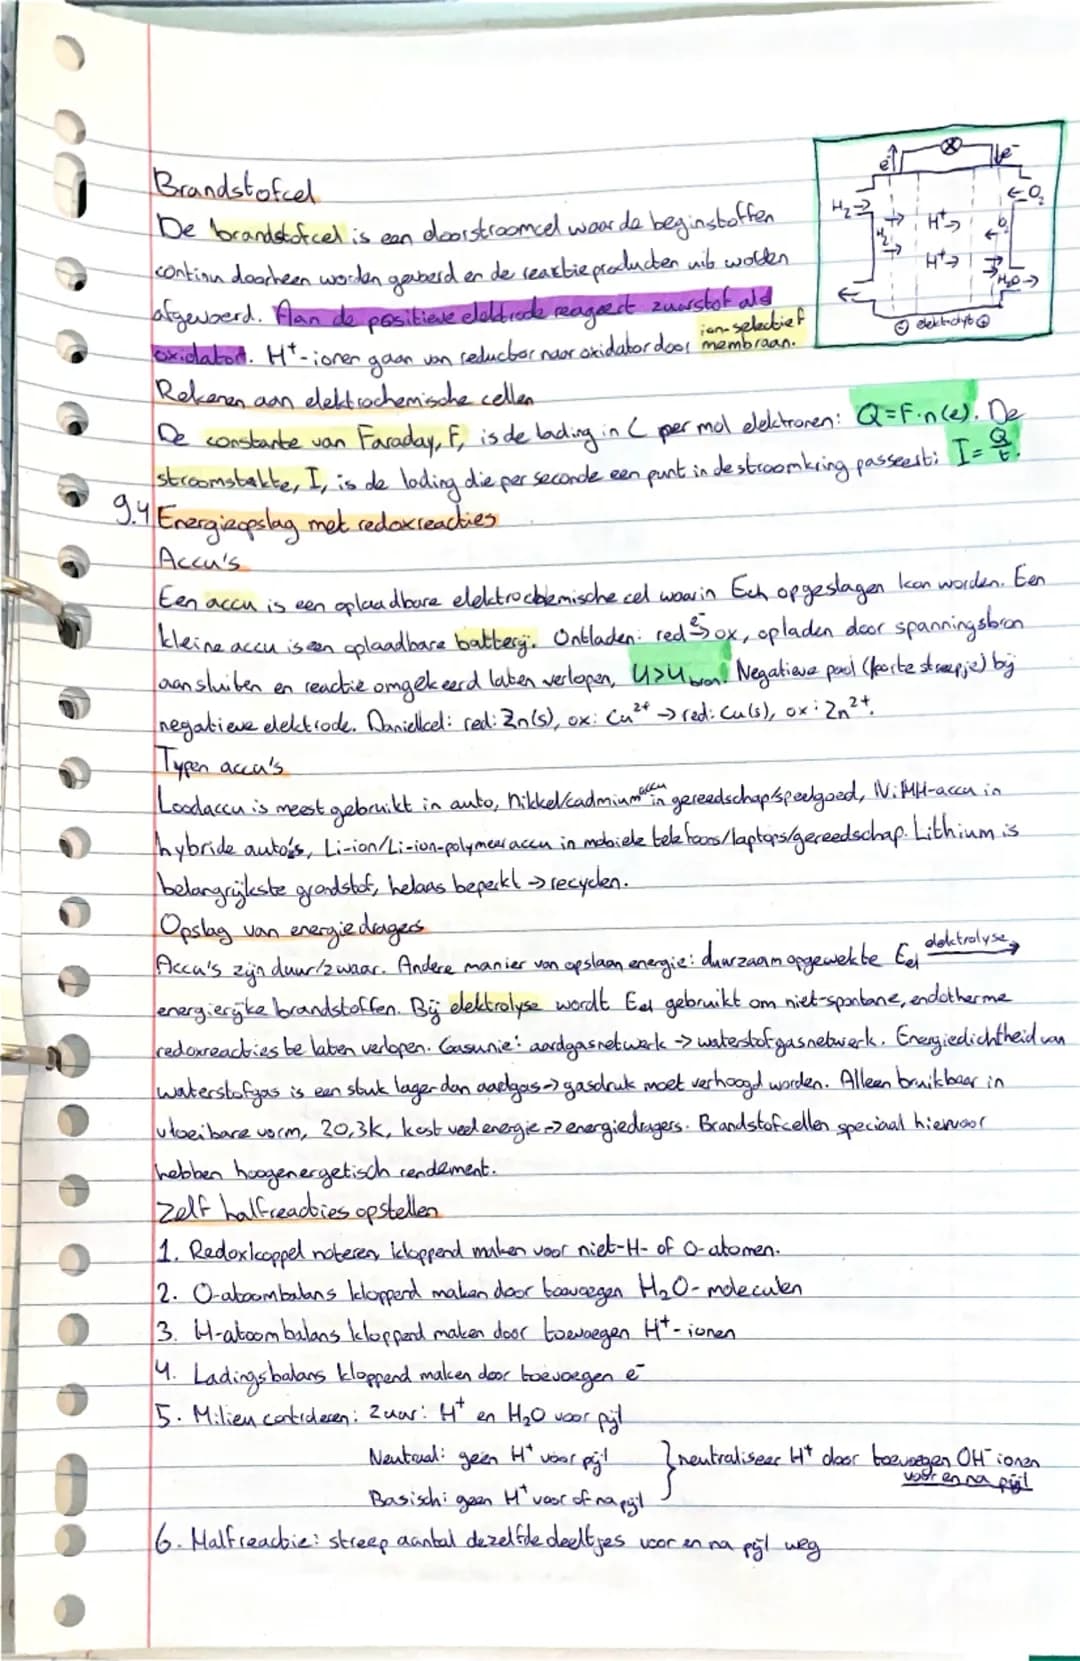 Brandstofcel
De brandstofcel is een doorstroomcel waar de beginstoffen
continu doorheen worden gevoerd en de reactieproducten uit worden
afgevoerd. Aan de positieve elektrode reageert zuurstof als
oxidator. H⁺-ionen gaan van reductor naar oxidator door ion-selectief membraan.
e⁻ e⁻
H₂→ ←O₂
H₂ → H⁺→ ← O₂
→ H⁺→ → H₂O→
←
⊖ elektrolyt ⊕
Rekenen aan elektrochemische cellen
De constante van Faraday, F, is de lading in C per mol elektronen: Q=F·n(e). De
stroomsterkte, I, is de lading die per seconde een punt in de stroomkring passeert: I=Q/t.
9.4 Energieopslag met redoxreacties
Accu's
Een accu is een oplaadbare elektrochemische cel waarin Ech opgeslagen kan worden. Een
kleine accu is een oplaadbare batterij. Ontladen: red e⁻→ ox, opladen door spanningsbron
aansluiten en reactie omgekeerd laten verlopen, U>Ubron! Negatieve pool (korte streepje) bij
negatieve elektrode. Daniellcel: red: Zn(s), ox: Cu²⁺ → red: Cu(s), ox: Zn²⁺.
Typen accu's
Loodaccu is meest gebruikt in auto, nikkel/cadmium accu in gereedschap/speelgoed, NiMH-accu in
hybride auto's, Li-ion/Li-ion-polymeer accu in mobiele telefoons/laptops/gereedschap. Lithium is
belangrijkste grondstof, helaas beperkt → recyclen.
Opslag van energiedragers
Accu's zijn duur/zwaar. Andere manier van opslaan energie: duurzaam opgewekte Eel elektrolyse→
energierijke brandstoffen. Bij elektrolyse wordt Eel gebruikt om niet-spontane, endotherme
redoxreacties te laten verlopen. Gasunie: aardgasnetwerk → waterstofgasnetwerk. Energiedichtheid van
waterstofgas is een stuk lager dan aardgas → gasdruk moet verhoogd worden. Alleen bruikbaar in
vloeibare vorm, 20,3K, kost veel energie → energiedragers. Brandstofcellen speciaal hiervoor
hebben hoog energetisch rendement.
Zelf halfreacties opstellen
1. Redoxkoppel noteren, kloppend maken voor niet-H- of O-atomen.
2. O-atoombalans kloppend maken door toevoegen H₂O-moleculen
3. H-atoombalans kloppend maken door toevoegen H⁺-ionen
4. Ladingsbalans kloppend maken door toevoegen e⁻
5. Milieu controleren: Zuur: H⁺ en H₂O voor pijl
Neutraal: geen H⁺ voor pijl } neutraliseer H⁺ door toevoegen OH⁻ ionen
voor en na pijl
Basisch: geen H⁺ voor of na pijl
6. Halfreactie: streep aantal dezelfde deeltjes voor en na pijl weg